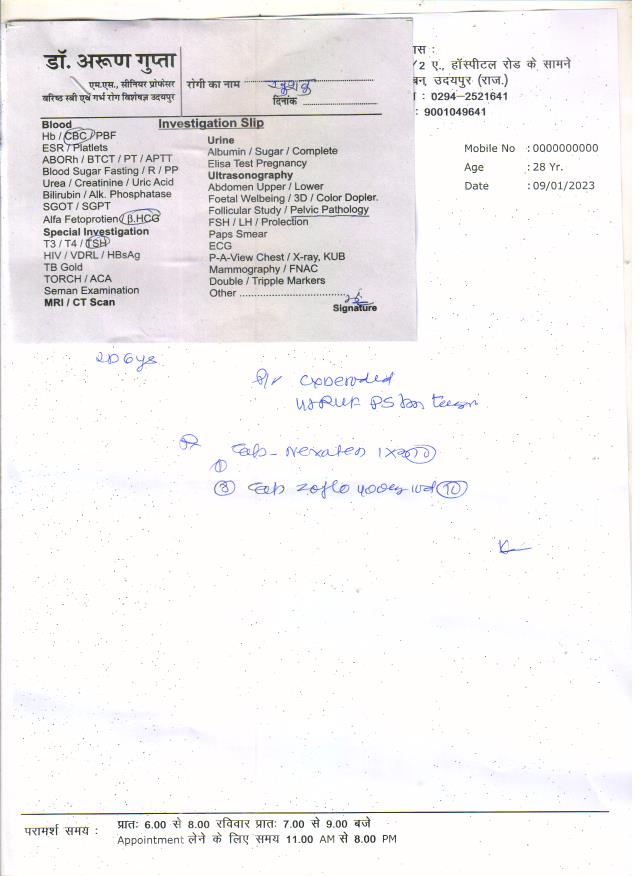 डॉ. अरूण गुप्ता
एम.एस., सीनियर प्रोफेसर
वरिष्ठ स्त्री एवं गर्भ रोग विशेषज्ञ उदयपुर
रोगी का नाम
दिनांक
Investigation Slip
Blood
Hb / CBC / PBF
ESR / Platlets
ABORh / BTCT / PT / APTT
Blood Sugar Fasting / R / PP
Urea / Creatinine / Uric Acid
Bilirubin / Alk. Phosphatase
SGOT / SGPT
Alfa Fetoprotien / β.HCG
Special Investigation
T3 / T4 / TSH
HIV / VDRL / HBsAg
TB Gold
TORCH / ACA
Seman Examination
MRI / CT Scan
Urine
Albumin / Sugar / Complete
Elisa Test Pregnancy
Ultrasonography
Abdomen Upper / Lower
Foetal Welbeing / 3D / Color Dopler.
Follicular Study / Pelvic Pathology
FSH / LH / Prolection
Paps Smear
ECG
P-A-View Chest / X-ray, KUB
Mammography / FNAC
Double / Tripple Markers
Other
Signature
ास :
/2 ए., हॉस्पीटल रोड के सामने
बन, उदयपुर (राज.)
: 0294–2521641
: 9001049641
Mobile No : 0000000000
Age : 28 Yr.
Date : 09/01/2023
Tab
10
Tab 10
परामर्श समय :
प्रातः 6.00 से 8.00 रविवार प्रातः 7.00 से 9.00 बजे
Appointment लेने के लिए समय 11.00 AM से 8.00 PM